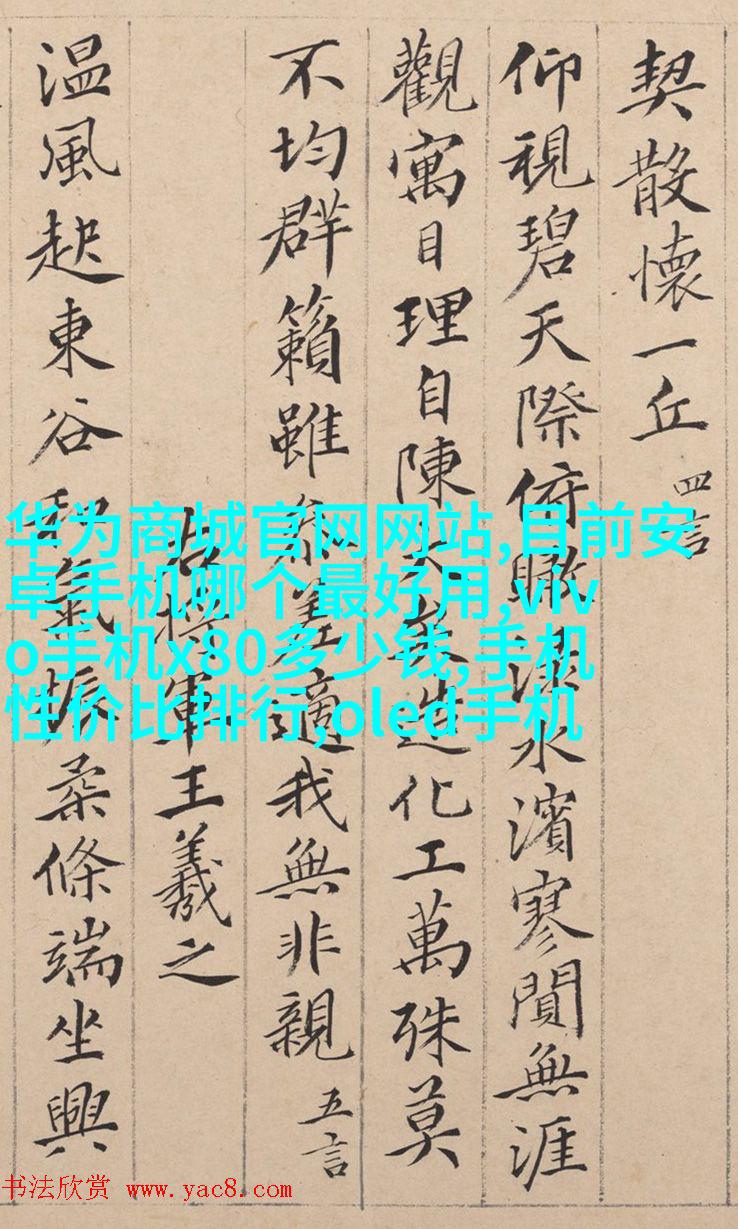 契散懷一丘 四言
仰視碧天際俯瞰淥水濱寥閴無涯
觀寓目理自陳大矣造化工萬殊莫
不均群籟雖參差適我無非親 五言
右將軍王羲之
温風起東谷和氣振柔條端坐興
华为商城官网网站,目前安
卓手机哪个最好用,viv
o手机x80多少钱,手机
性价比排行,oled手机
书法欣赏 www.yac8.com